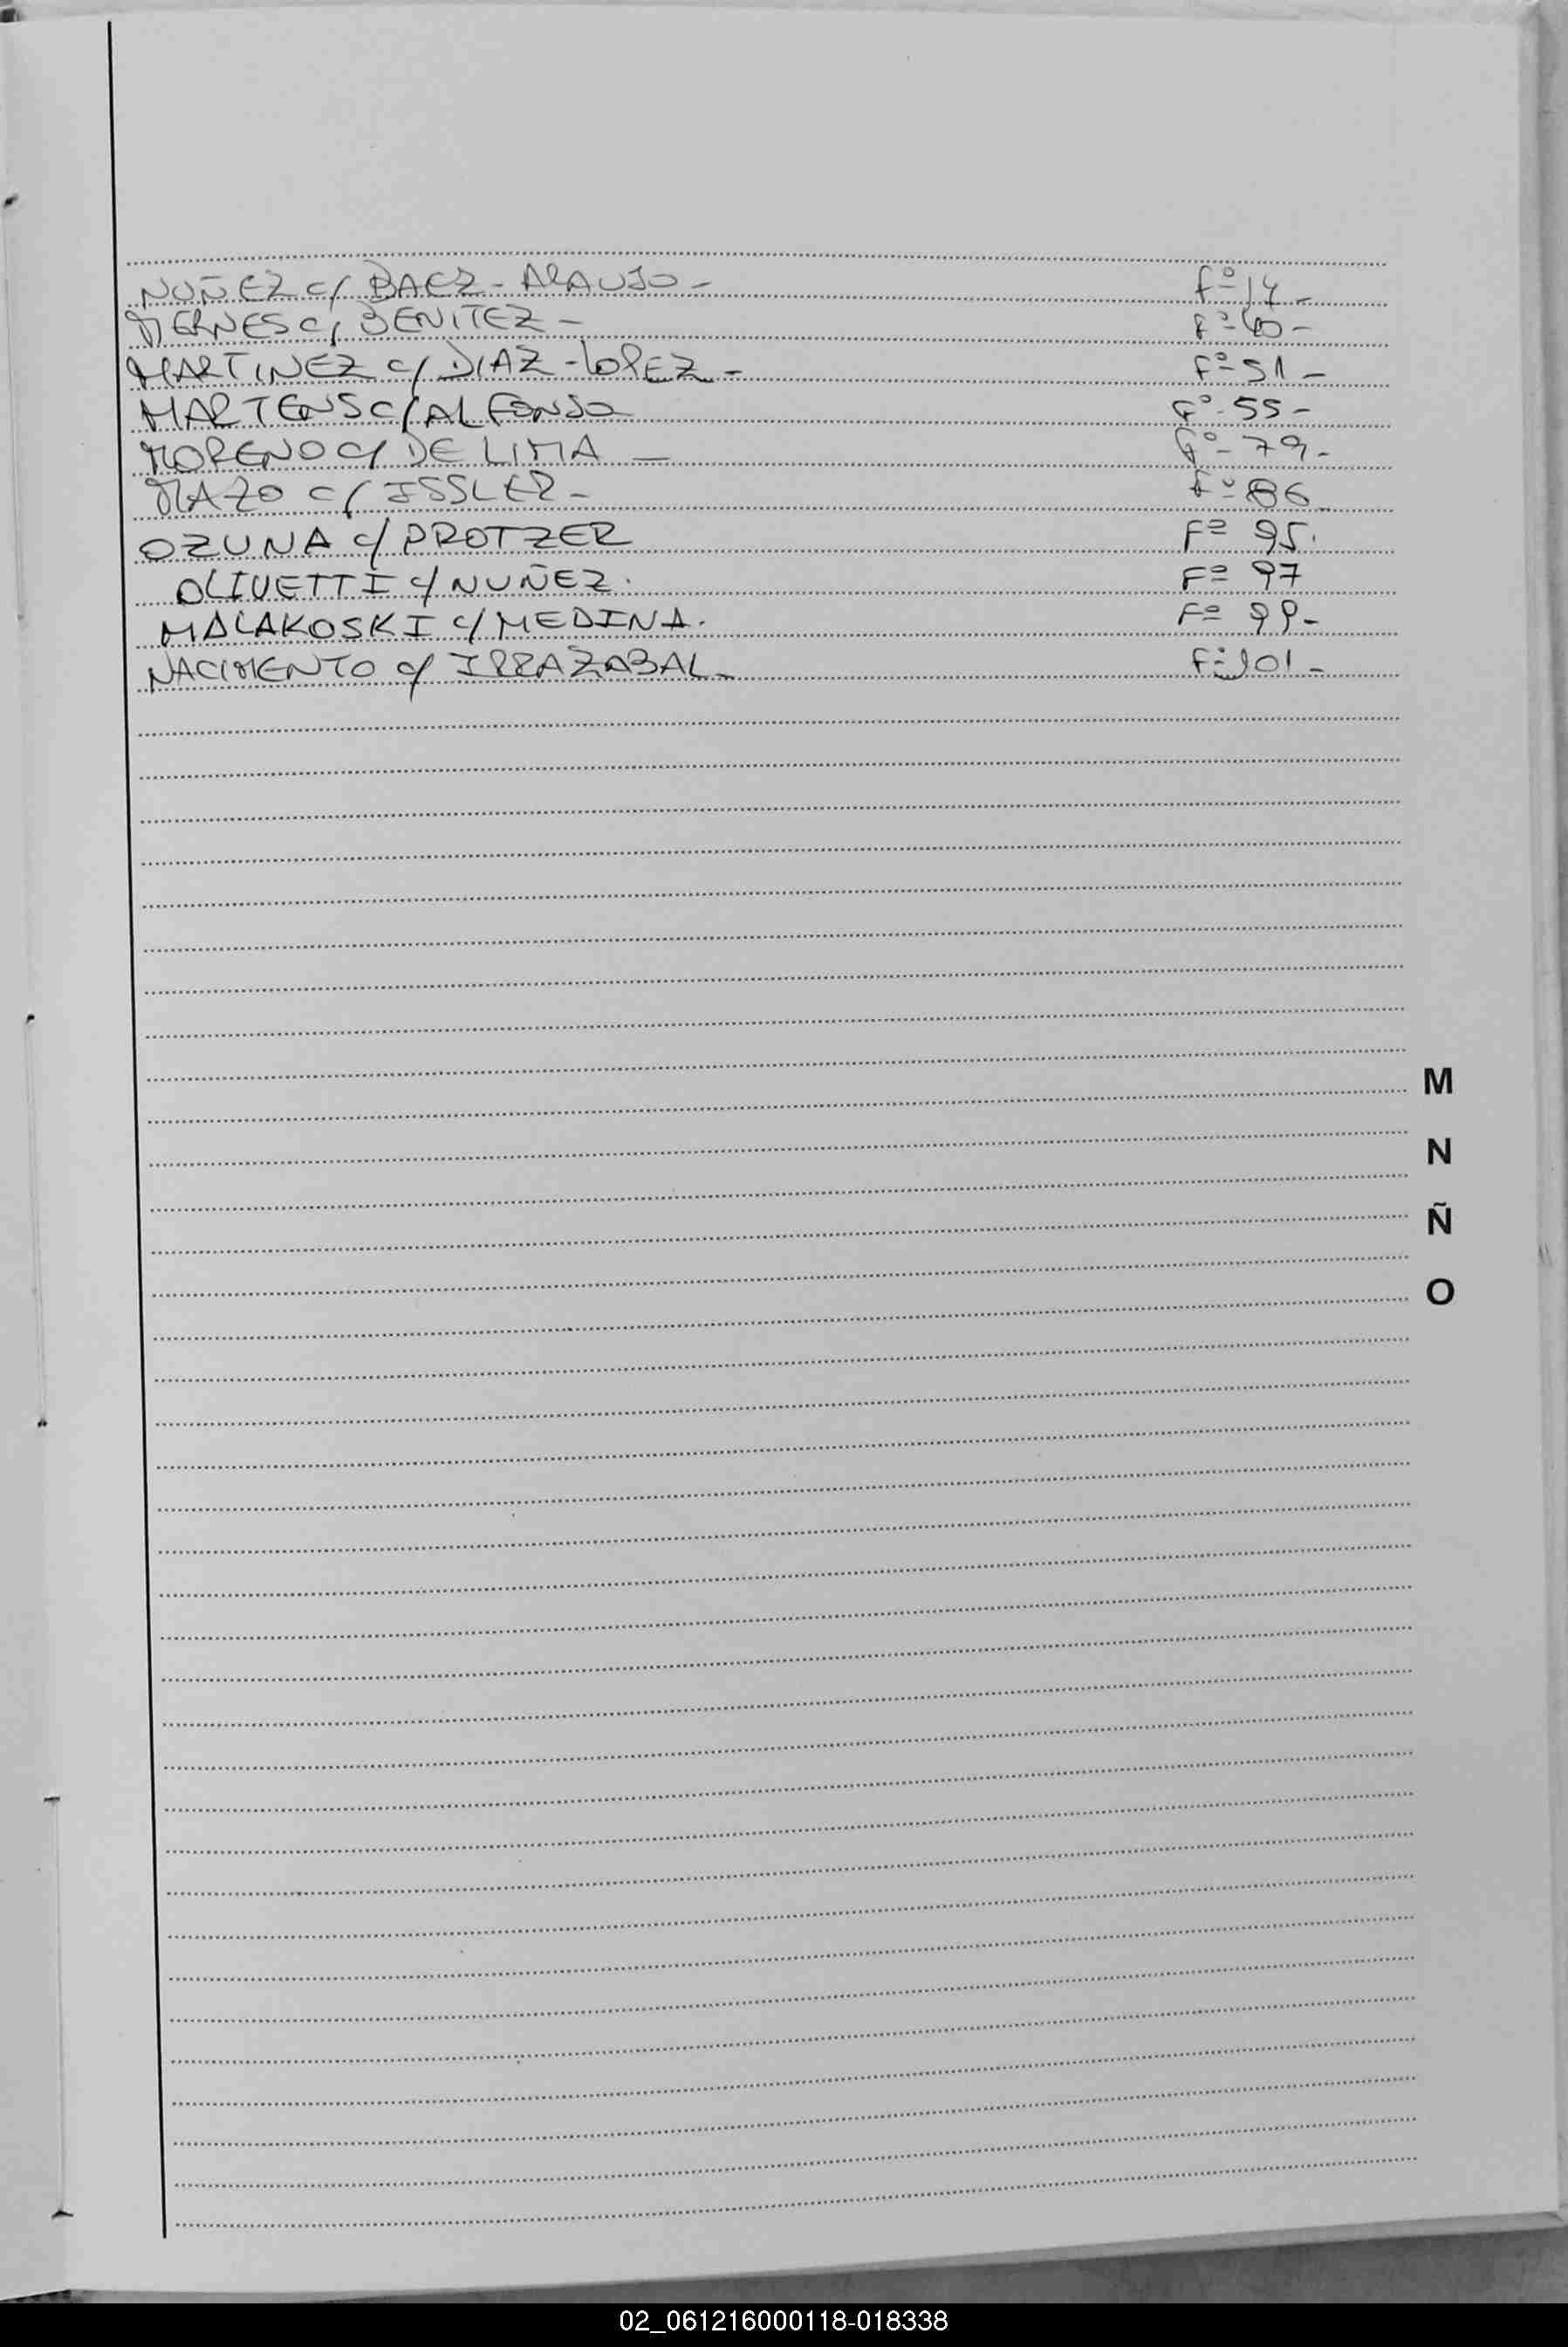 NUÑEZ c/ BAEZ - ARAUJO - Fº 14 -
MERNES c/ BENITEZ - Fº 40 -
MARTINEZ c/ DIAZ - LOPEZ - Fº 51 -
MARTENS c/ ALFONSO Fº 55 -
MORENO c/ DE LIMA - Fº 79 -
MAZO c/ ISSLER - Fº 86
OZUNA c/ PROTZER Fº 95.
OLIVETTI c/ NUÑEZ. Fº 97
MALAKOSKI c/ MEDINA. Fº 99 -
NACIMENTO c/ IRRAZABAL - Fº 101 -
M
N
Ñ
O
02_061216000118-018338